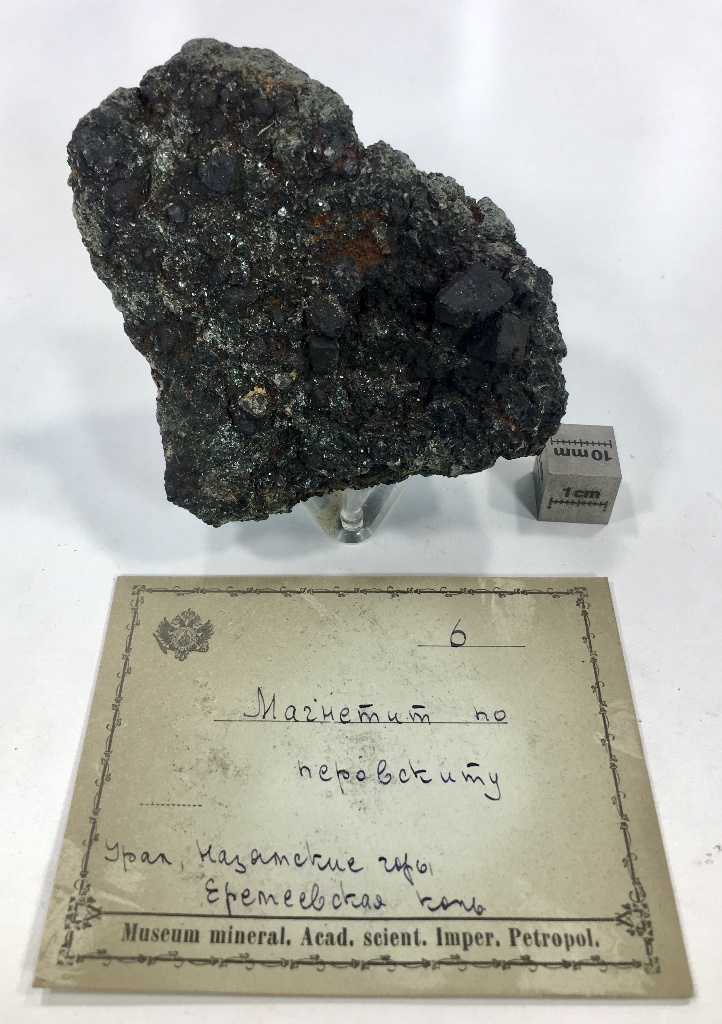 10 mm
1 cm
6
Магнетит по
перовскиту
Урал, Назямские горы
Еремеевская копь
Museum mineral. Acad. scient. Imper. Petropol.